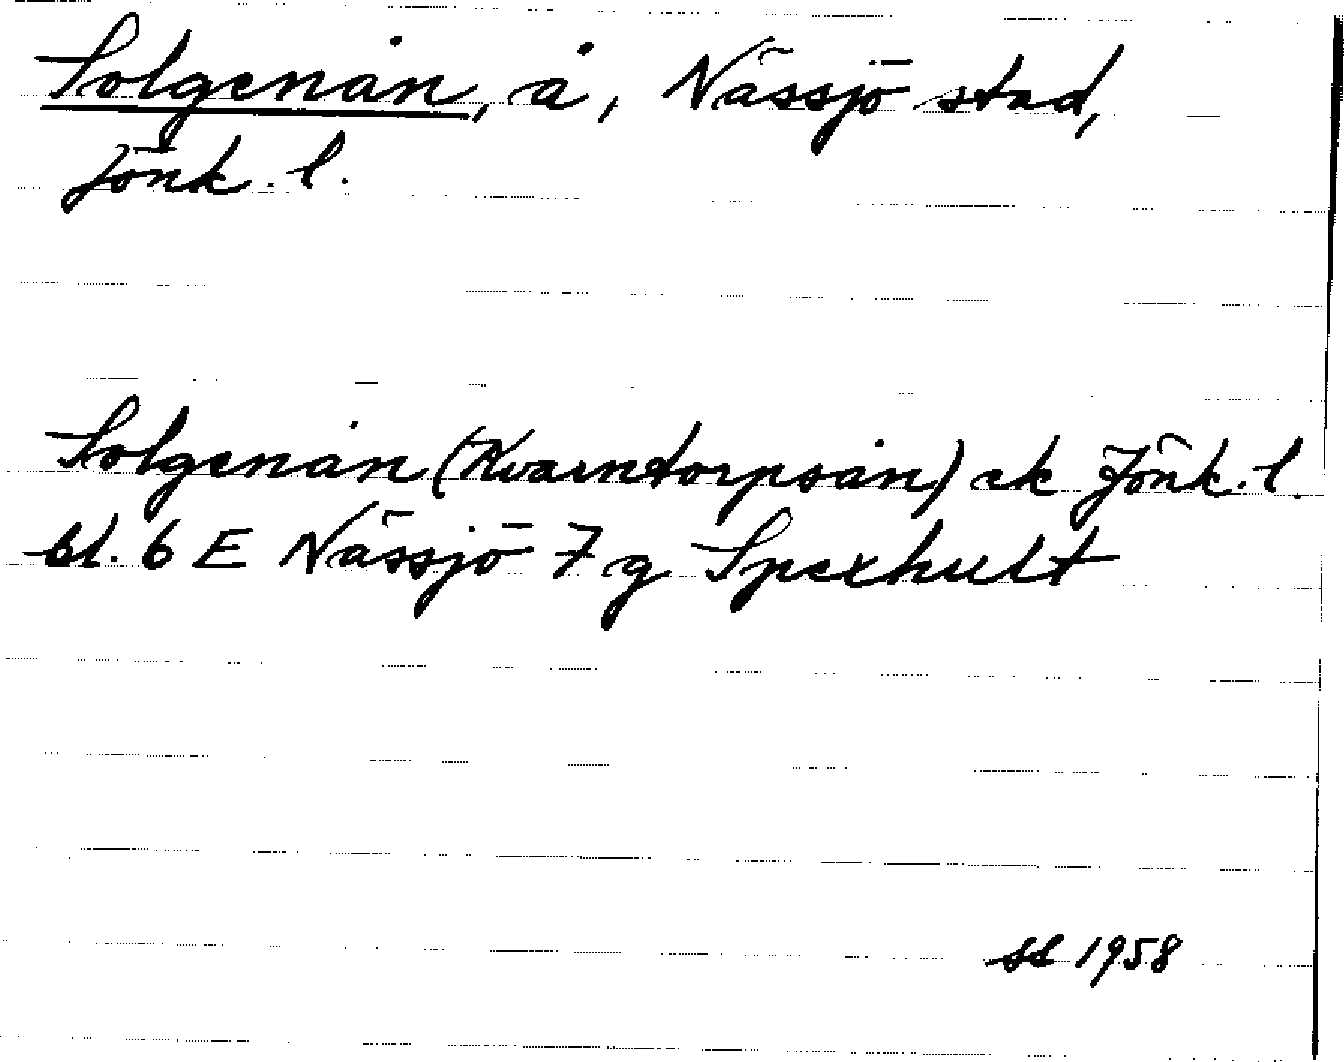 Solgenån, å, Nässjö stad,
Jönk. l.
Solgenån (Kvarntorpsån) ek Jönk. l.
bl. 6 E Nässjö 7 g Spexhult
1958